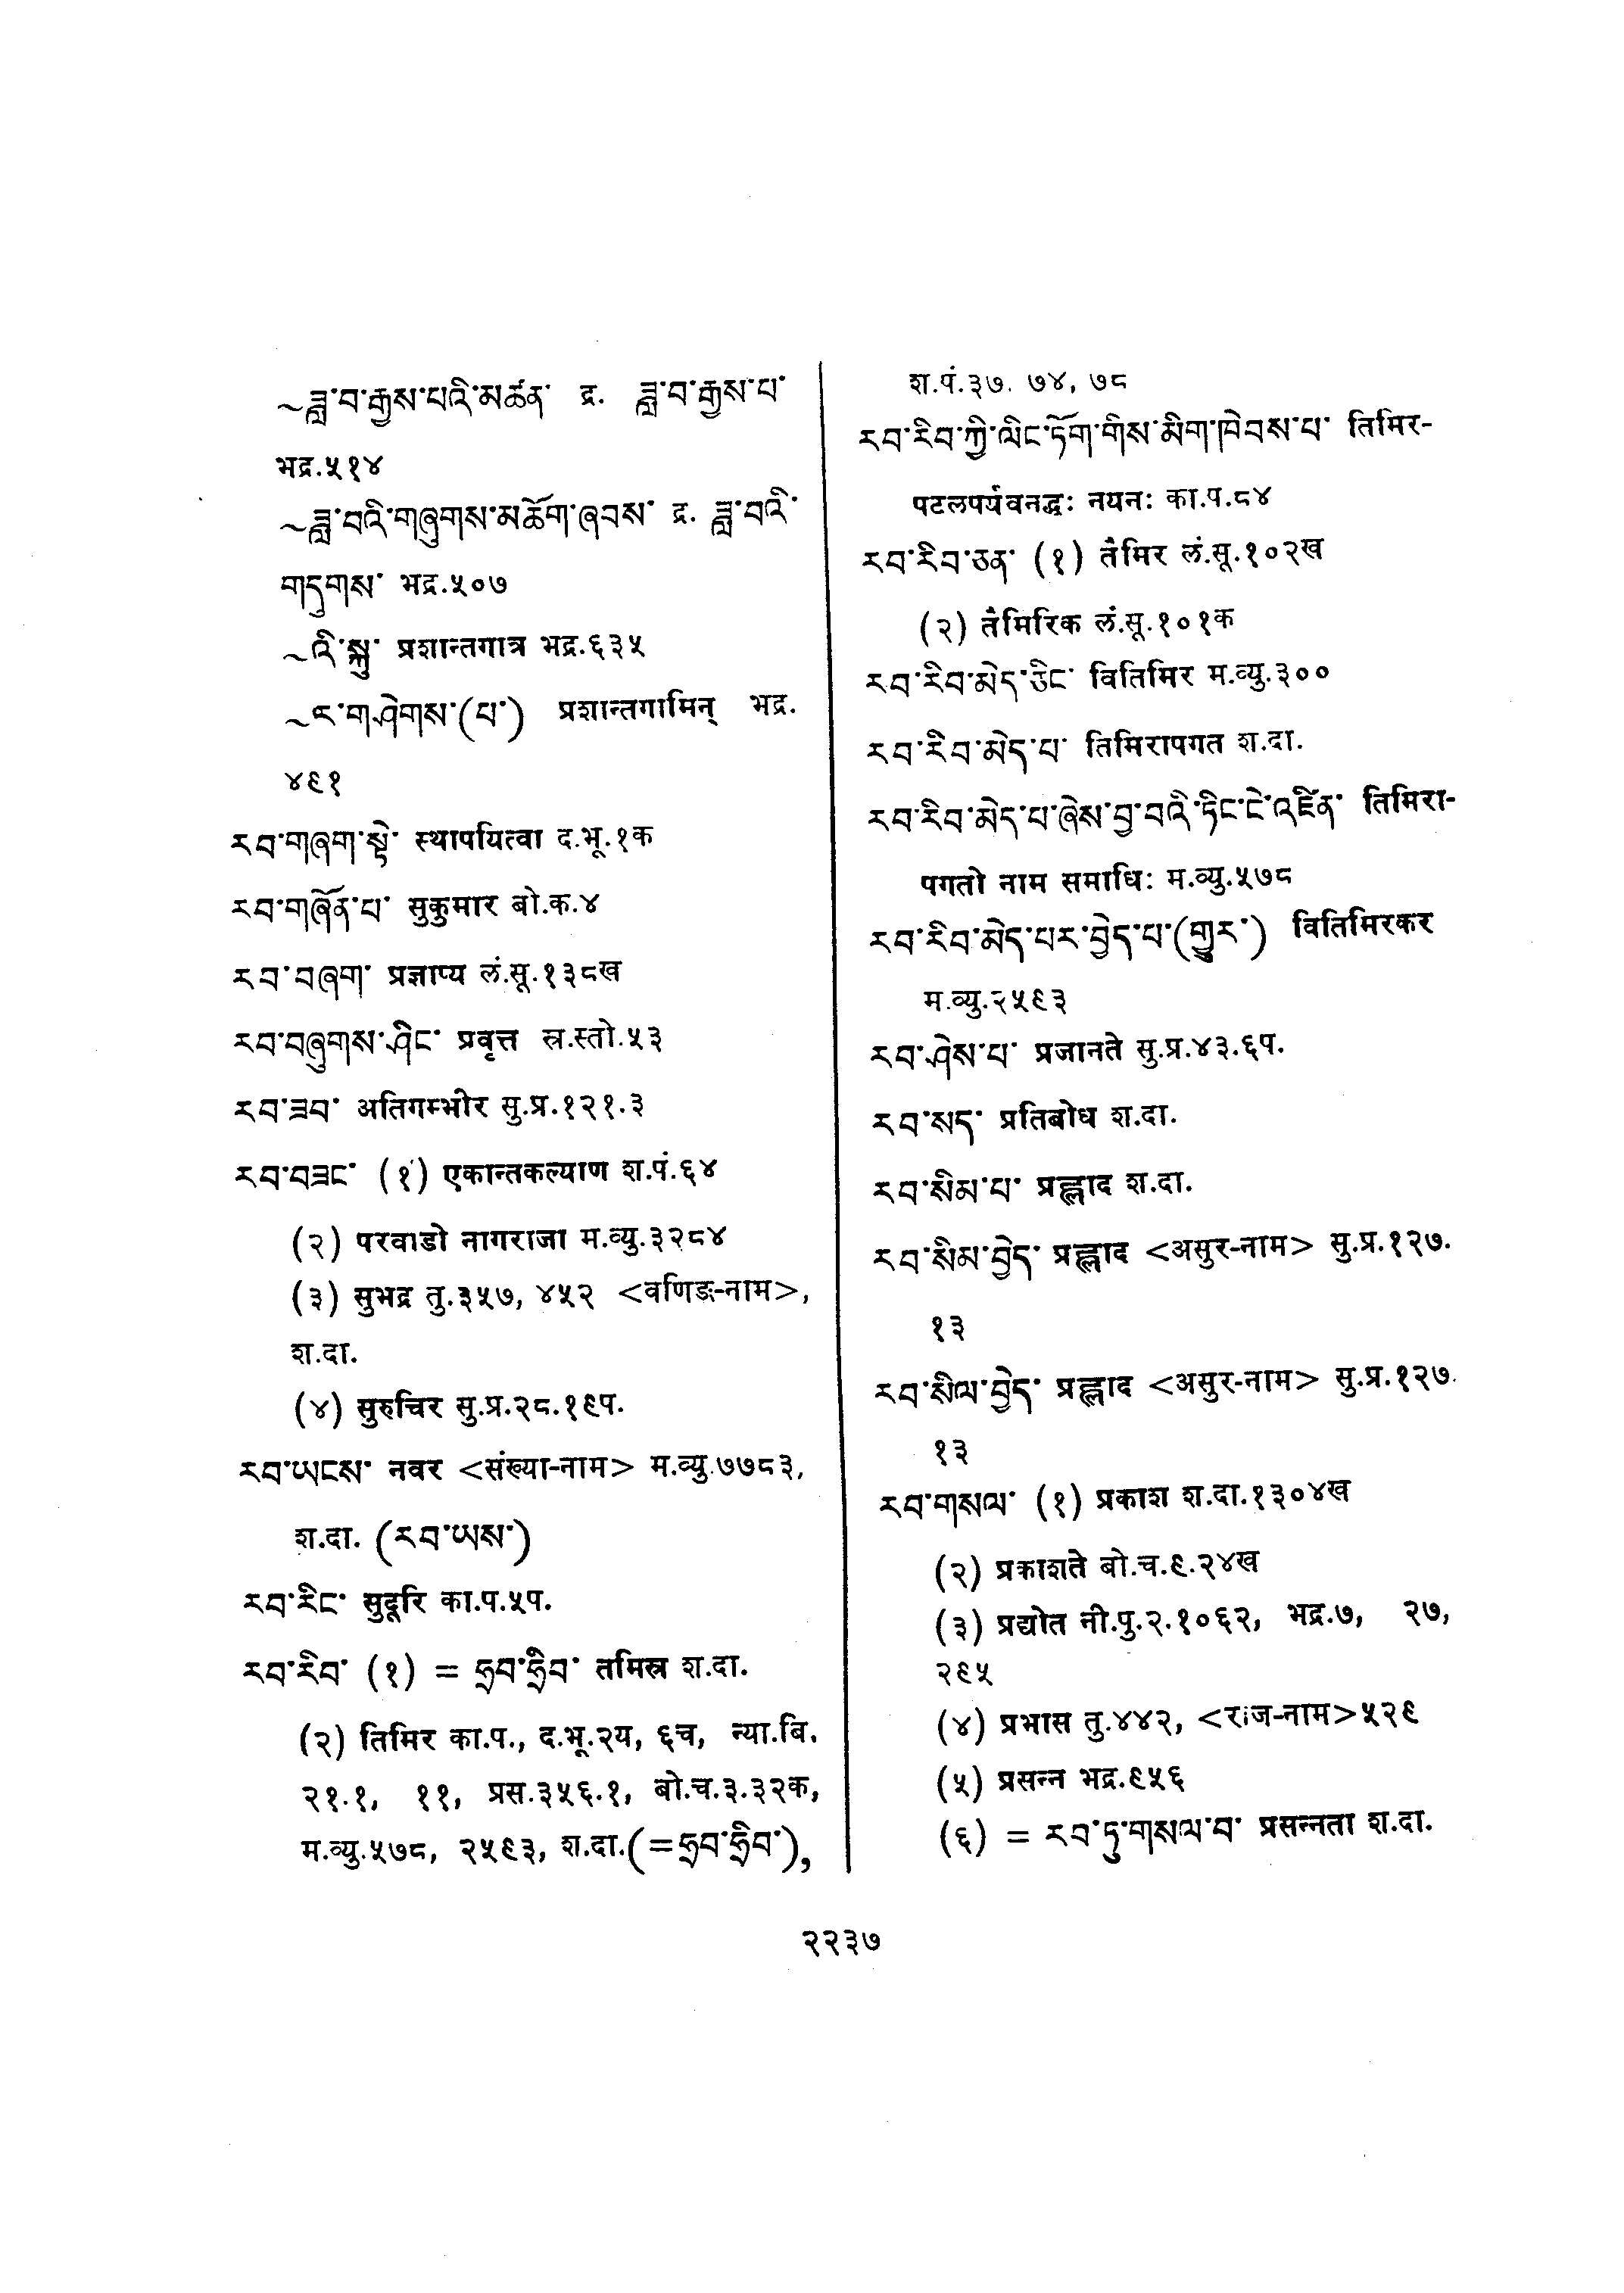 ~ཟླ་བ་རྒྱས་པའི་མཚན་ द्र. ཟླ་བ་རྒྱས་པ་
भद्र.५१४
~ཟླ་བའི་གཞུགས་མཆོག་ཞབས་ द्र. ཟླ་བའི་
གདུགས་ भद्र.५०७
~འི་སྐུ་ प्रशान्तगात्र भद्र.६३५
~ང་གཤེགས་(པ་) प्रशान्तगामिन् भद्र.
४९१
རབ་གཞག་སྟེ་ स्थापयित्वा द.भू.१क
རབ་གཞོན་པ་ सुकुमार बो.क.४
རབ་བཞག་ प्रज्ञाप्य लं.सू.१३८ख
རབ་བཞུགས་ཤིང་ प्रवृत्त स्र.स्तो.५३
རབ་ཟབ་ अतिगम्भीर सु.प्र.१२१.३
རབ་བཟང་ (१) एकान्तकल्याण श.पं.६४
(२) परवाडो नागराजा म.व्यु.३२८४
(३) सुभद्र तु.३५७, ४५२ <वणिङ-नाम>,
श.दा.
(४) सुरुचिर सु.प्र.२८.१९प.
རབ་ཡངས་ नवर <संख्या-नाम> म.व्यु.७७८३,
श.दा. (རབ་ཡས་)
རབ་རིང་ सुदूरि का.प.५प.
རབ་རིབ་ (१) = ཧྲབ་ཧྲིབ་ तमिस्र श.दा.
(२) तिमिर का.प., द.भू.२य, ६च, न्या.बि.
२१.१, ११, प्रस.३५६.१, बो.च.३.३२क,
म.व्यु.५७८, २५९३, श.दा.(=ཧྲབ་ཧྲིབ་),
श.पं.३७. ७४, ७८
རབ་རིབ་ཀྱི་ལིང་ཏོག་གིས་མིག་ཁེབས་པ་ तिमिर-
पटलपर्यवनद्धः नयनः का.प.८४
རབ་རིབ་ཅན་ (१) तैमिर लं.सू.१०२ख
(२) तैमिरिक लं.सू.१०१क
རབ་རིབ་མེད་ཅིང་ वितिमिर म.व्यु.३००
རབ་རིབ་མེད་པ་ तिमिरापगत श.दा.
རབ་རིབ་མེད་པ་ཞེས་བྱ་བའི་ཏིང་ངེ་འཛིན་ तिमिरा-
पगतो नाम समाधिः म.व्यु.५७८
རབ་རིབ་མེད་པར་བྱེད་པ་(གྱུར་) वितिमिरकर
म.व्यु.२५९३
རབ་ཤེས་པ་ प्रजानते सु.प्र.४३.६प.
རབ་སད་ प्रतिबोध श.दा.
རབ་སིམ་པ་ प्रह्लाद श.दा.
རབ་སིམ་བྱེད་ प्रह्लाद <असुर-नाम> सु.प्र.१२७.
१३
རབ་སིལ་བྱེད་ प्रह्लाद <असुर-नाम> सु.प्र.१२७.
१३
རབ་གསལ་ (१) प्रकाश श.दा.१३०४ख
(२) प्रकाशते बो.च.९.२४ख
(३) प्रद्योत नी.पु.२.१०६२, भद्र.७, २७,
२९५
(४) प्रभास तु.४४२, <राज-नाम>५२९
(५) प्रसन्न भद्र.९५६
(६) = རབ་ཏུ་གསལ་བ་ प्रसन्नता श.दा.
२२३७